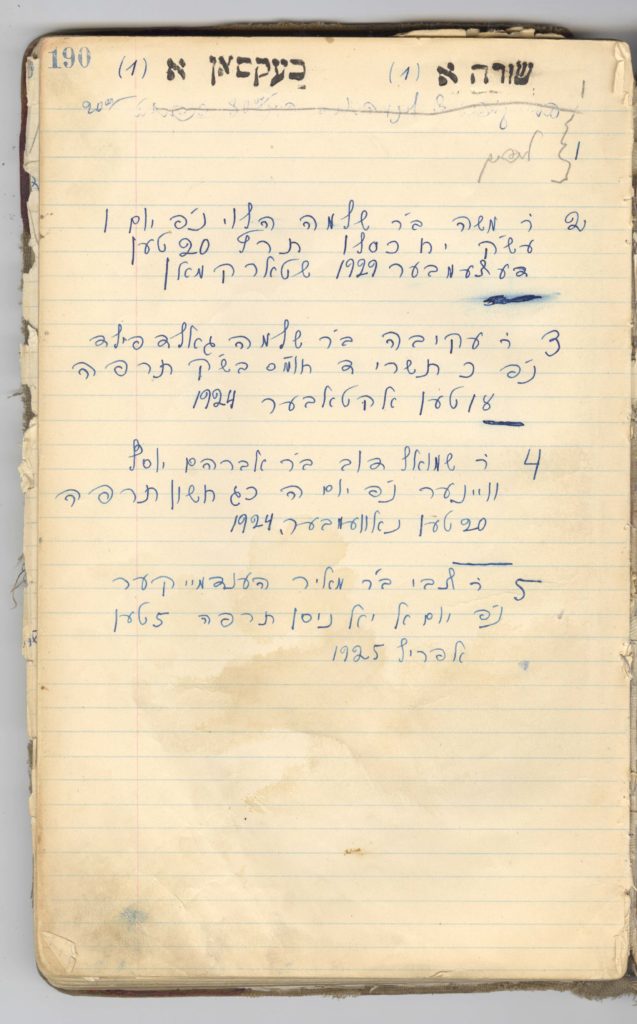 190
שורה א (1) סעקסאן א (1)
1
2 ר' משה ב"ר שלמה הלוי נ"פ יום ו
עש"ק יח כסלו תר"ץ 20טען
דעצעמבער 1929 שטארקמאן
3 ר' עקיבה ב"ר שלמה גאלדפילד
נ"פ כ תשרי ד חוהמ"ס בש"ק תרפה
18טען אקטאבער 1924
4 ר' שמואל דוב ב"ר אברהם יוסף
וויינער נ"פ יום ה כג חשון תרפה
20טען נאוועמבער, 1924
5 ר' צבי ב"ר מאיר הענדמייקער
נ"פ יום א יא ניסן תרפה 5טען
אפריל 1925